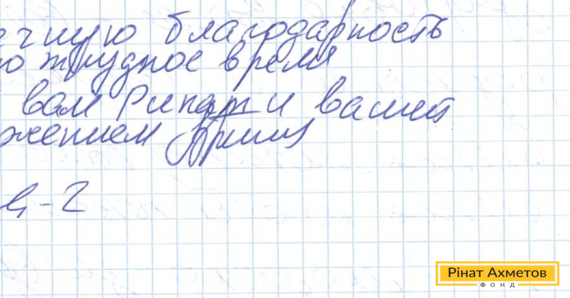 ечную благодарность
ю трудное время
вам Ринат и вашей
жением
Рінат Ахметов
ФОНД